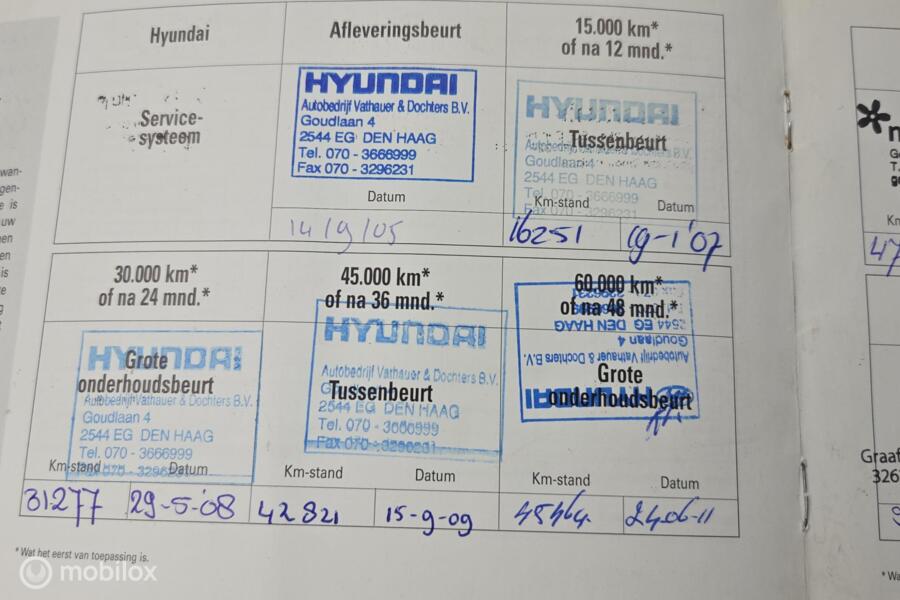 Hyundai
Afleveringsbeurt
15.000 km*
of na 12 mnd.*
Service-
systeem
HYUNDAI
Autobedrijf Vathauer & Dochters B.V.
Goudlaan 4
2544 EG DEN HAAG
Tel. 070 - 3666999
Fax 070 - 3296231
Datum
14/9/05
HYUNDAI
Tussenbeurt
Autobedrijf Vathauer & Dochters B.V.
Goudlaan 4
2544 EG DEN HAAG
Tel. 070 - 3666999
Fax 070 - 3296231
Km-stand
Datum
16251
19-1'07
30.000 km*
of na 24 mnd.*
HYUNDAI
Grote
onderhoudsbeurt
Autobedrijf Vathauer & Dochters B.V.
Goudlaan 4
2544 EG DEN HAAG
Tel. 070 - 3666999
Fax 070 - 3296231
Km-stand
Datum
31277
29-5-'08
45.000 km*
of na 36 mnd.*
HYUNDAI
Autobedrijf Vathauer & Dochters B.V.
Tussenbeurt
2544 EG DEN HAAG
Tel. 070 - 3666999
Fax 070 - 3296231
Km-stand
Datum
42821
15-9-09
60.000 km*
of na 48 mnd.*
2544 EG DEN HAAG
Goudlaan 4
Autobedrijf Vathauer & Dochters B.V.
Grote
onderhoudsbeurt
HYUNDAI
Km-stand
Datum
24-06-11
* Wat het eerst van toepassing is.
mobilox
wan-
gen-
e is
uw
en
is
47
Graaf
326
* Wa